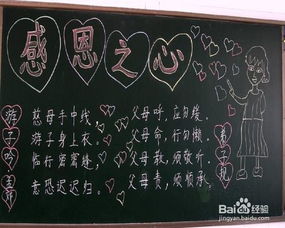 感恩之心
游子吟
孟郊
慈母手中线，
游子身上衣。
临行密密缝，
意恐迟迟归。
父母呼，应勿缓，
父母命，行勿懒，
父母教，须敬听，
父母责，须顺承。
弟子规
Baidu经验